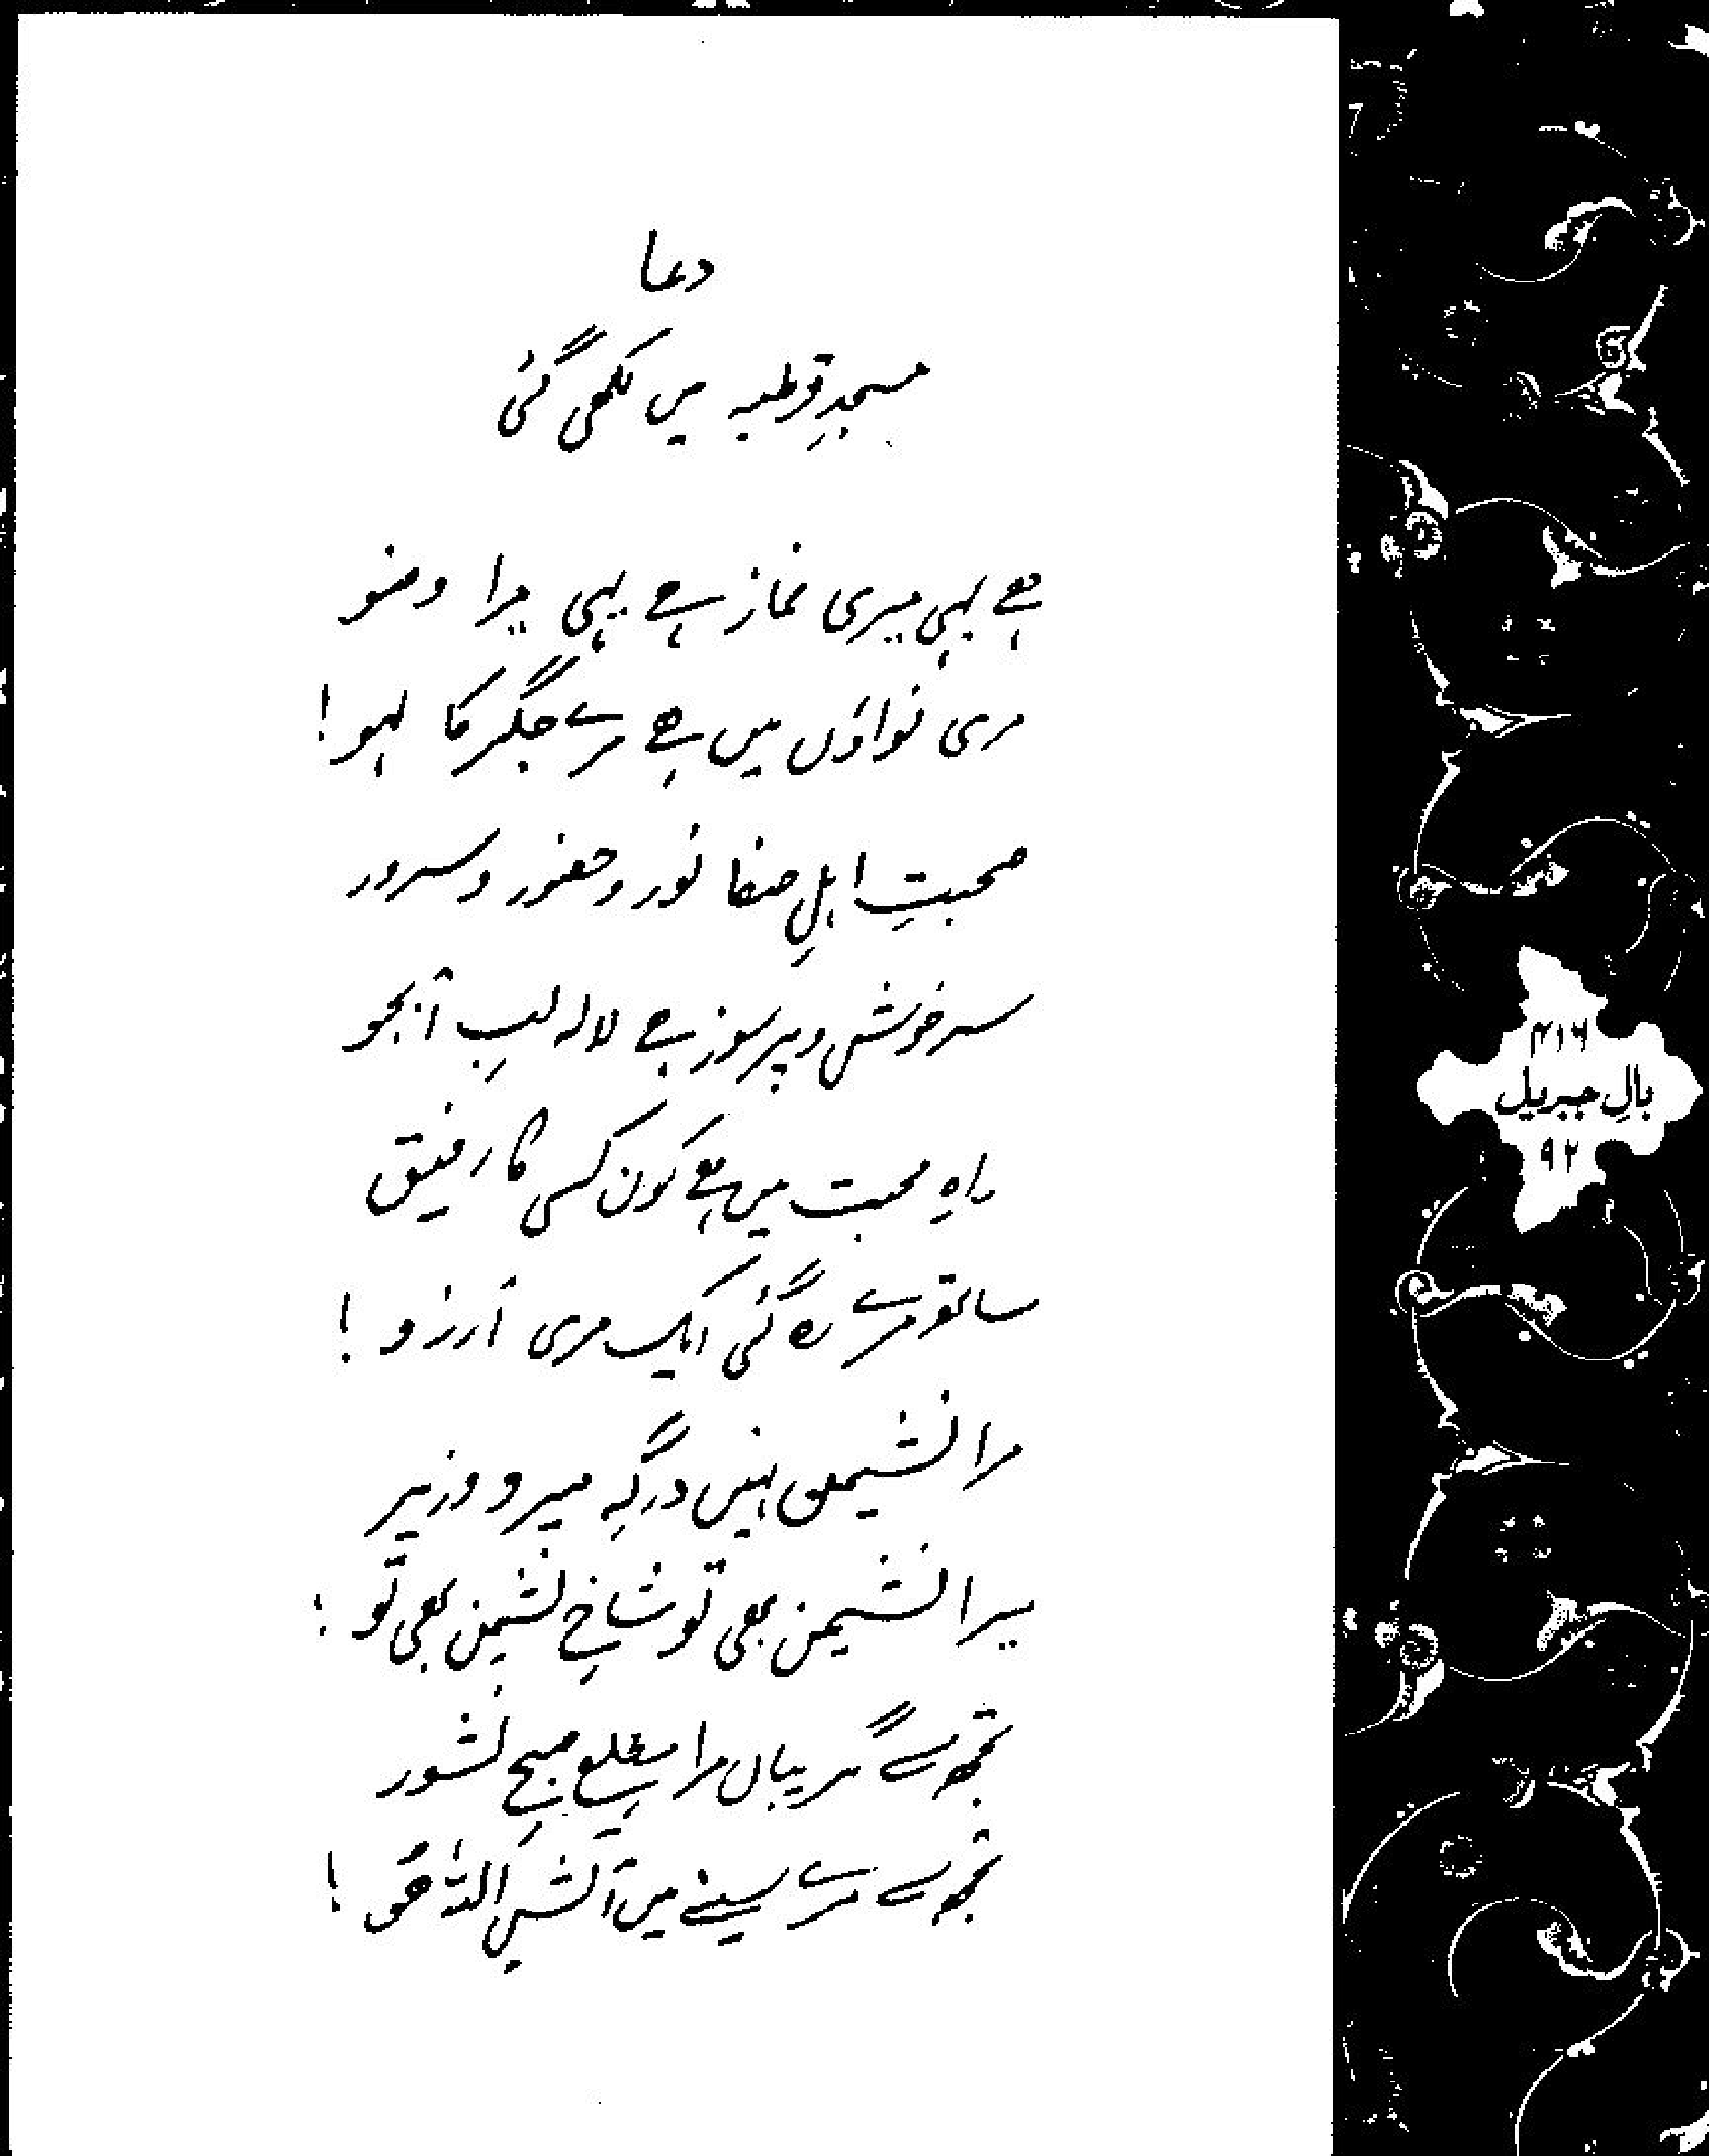 دعا
مسجدِ قرطبہ میں لکھی گئی
ہے یہی میری نماز ہے یہی میرا وضو
مری نواؤں میں ہے مرے جگر کا لہو!
صحبتِ اہلِ صفا نور و حضور و سرور
سرخوش و پرسوز ہے لالہ لبِ آبجو
راہِ محبت میں ہے کون کسی کا رفیق
ساتھ مرے رہ گئی ایک مری آرزو!
مرا نشیمن نہیں درگہِ میر و وزیر
میرا نشیمن بھی تو شاخِ نشیمن بھی تو!
تجھ سے گریباں مرا مطلعِ صبحِ نشور
تجھ سے مرے سینے میں آتشِ اللہ ھُو!
۴۱۶
بالِ جبریل
۹۲